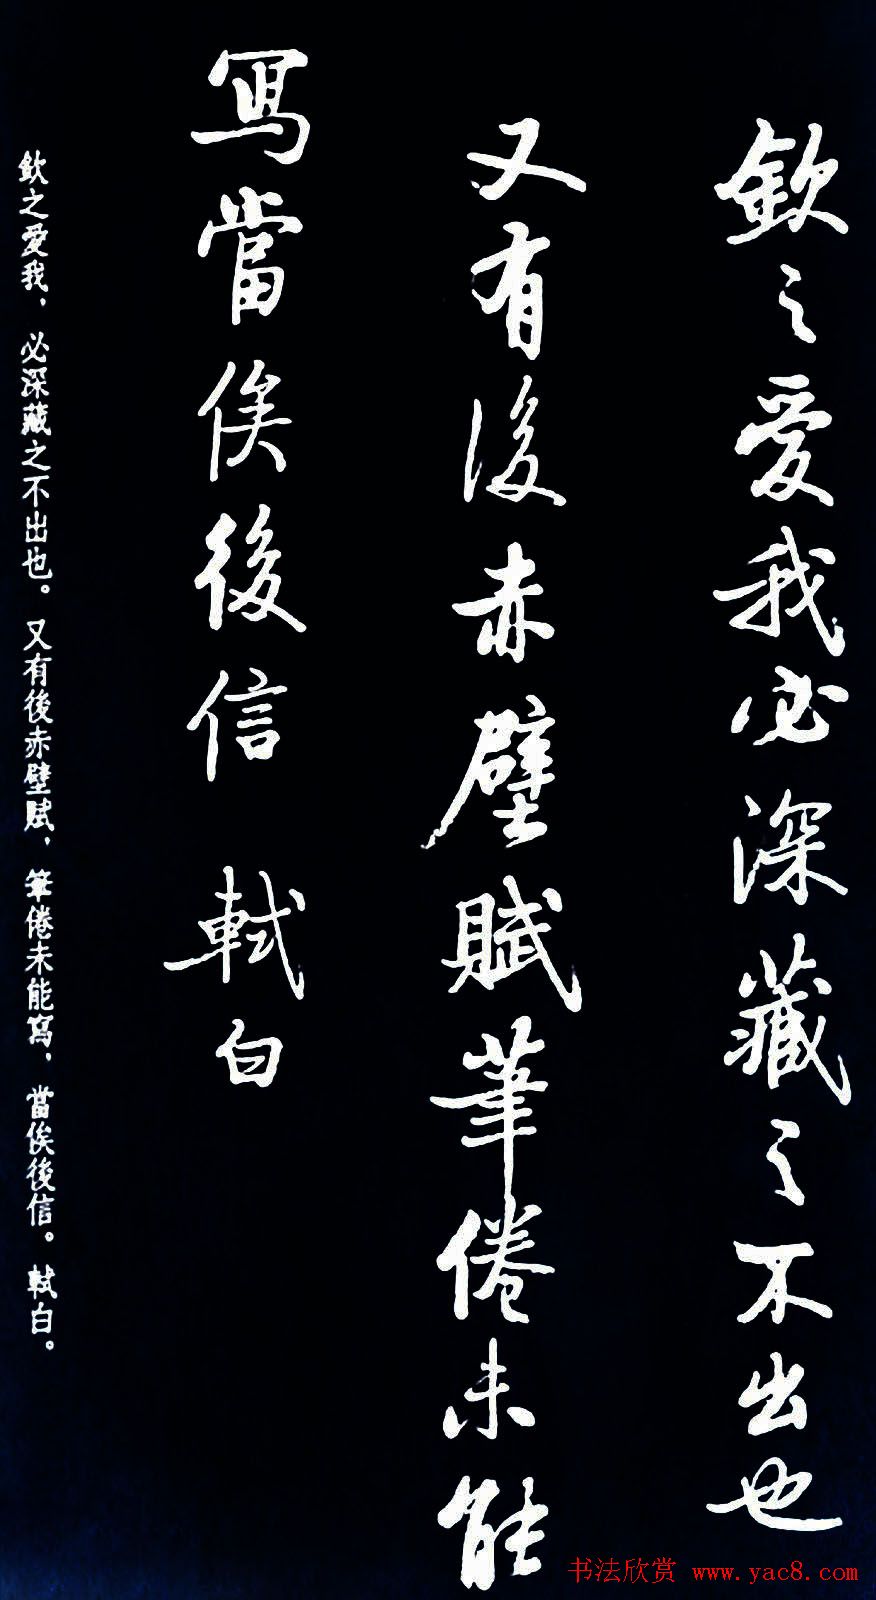 欽之愛我必深藏之不出也
又有後赤壁賦筆倦未能
寫當俟後信　軾白
欽之愛我，必深藏之不出也。又有後赤壁賦，筆倦未能寫，當俟後信。軾白。
书法欣赏 www.yac8.com